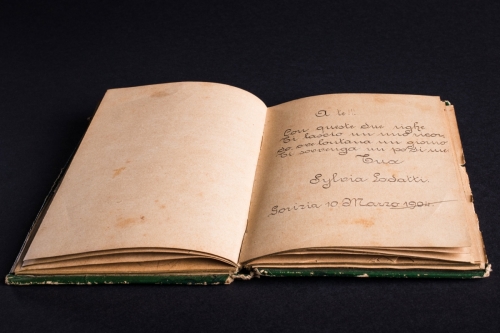 A te!!
Con queste due righe
Ti lascio un mio ricor
se lontana un giorno
Ti sovvenga un po' di me
Tua
Sylvia
Gorizia 10 Marzo 1904